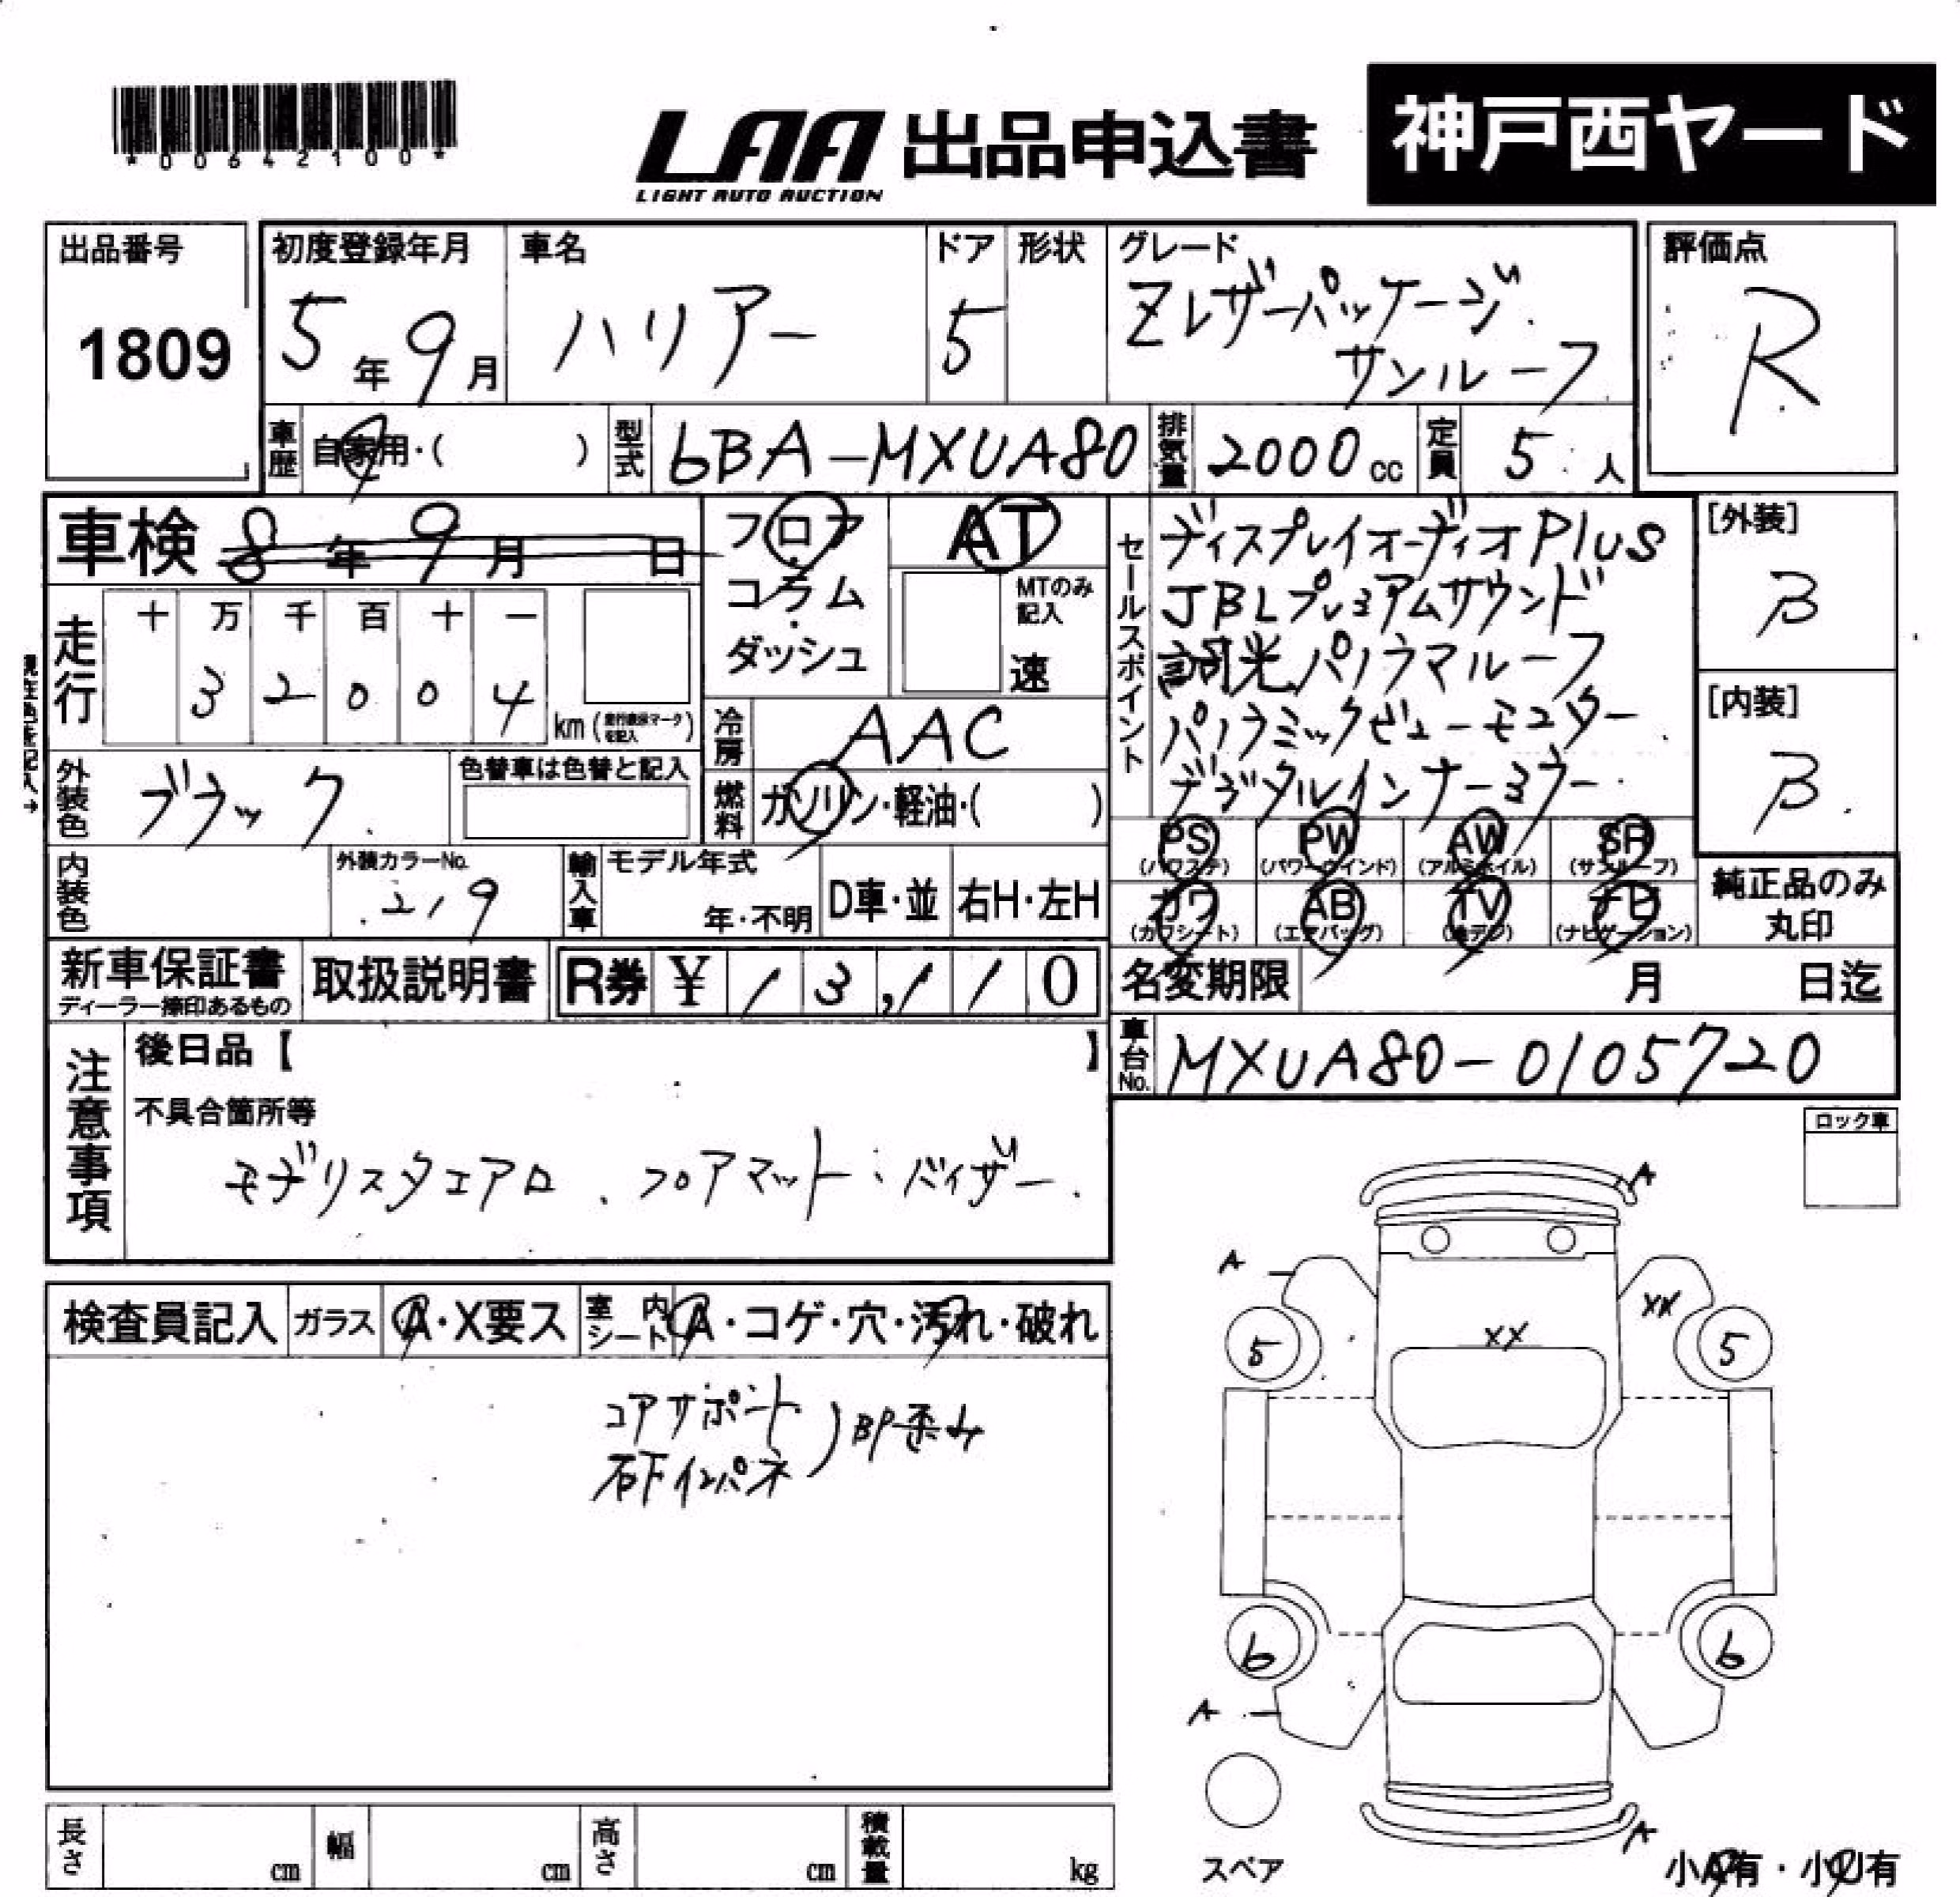 *00642100*
LAA 出品申込書
LIGHT AUTO AUCTION
神戸西ヤード
出品番号
1809
初度登録年月
5年9月
車名
ハリアー
ドア
5
形状
グレード
Zレザーパッケージ
サンルーフ
評価点
R
車歴
自家用・( )
型式
6BA-MXUA80
排気量
2000cc
定員
5人
車検 8年9月 日
フロア
コラム
ダッシュ
AT
MTのみ
記入
速
セールスポイント
ディスプレイオーディオPlus
JBLプレミアムサウンド
調光パノラマルーフ
パノラミックビューモニター
デジタルインナーミラー
[外装]
B
[内装]
B
走行
十 万 千 百 十 一
3 2 0 0 4
km
冷房
AAC
外装色
ブラック
色替車は色替と記入
燃料
ガソリン・軽油・( )
PS
(パワステ)
PW
(パワーウインド)
AW
(アルミホイル)
SR
(サンルーフ)
カワ
(カワシート)
AB
(エアバッグ)
TV
(地デジ)
ナビ
(ナビゲーション)
純正品のみ
丸印
内装色
外装カラーNo.
219
輸入車
モデル年式
年・不明
D車・並
右H・左H
新車保証書
ディーラー捺印あるもの
取扱説明書
R券 ¥ 13,110
名変期限
月 日迄
車台No.
MXUA80-0105720
注意事項
後日品【 】
不具合箇所等
モデリスタエアロ、フロアマット、バイザー.
ロック車
検査員記入
ガラス
A・X要ス
室内シート
A・コゲ・穴・汚れ・破れ
コアサポート
右下インパネ
)部歪み
A
A
XX
XX
5
5
6
6
A
スペア
A
小A有・小U有
長さ
cm
幅
cm
高さ
cm
積載量
kg